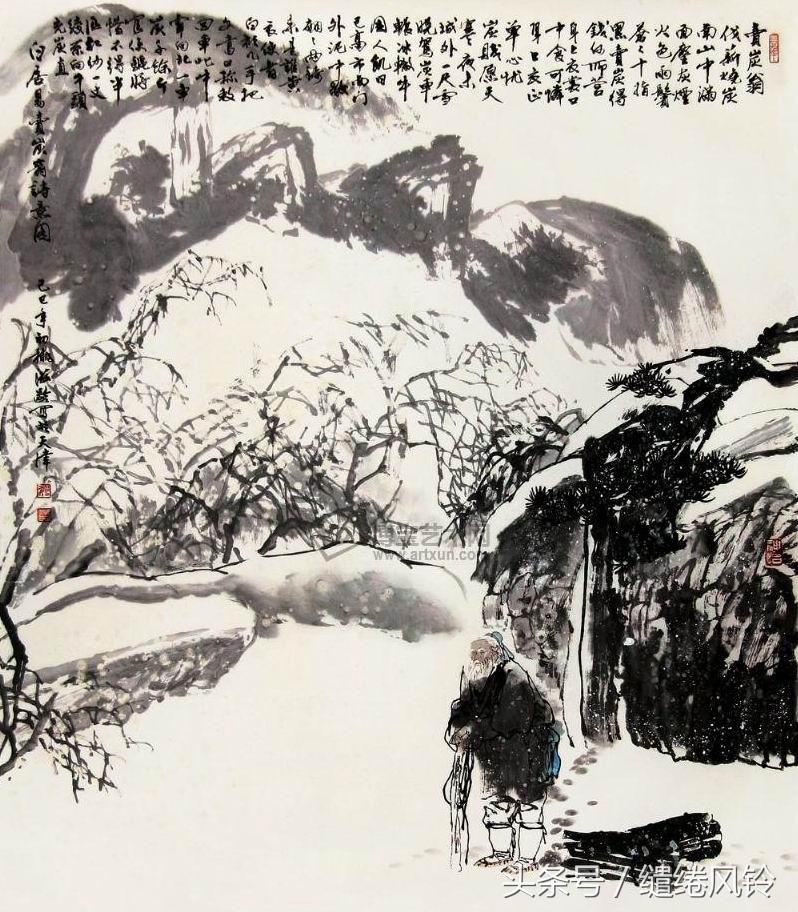 賣炭翁
伐薪燒炭
南山中滿
面塵灰煙
火色兩鬢
蒼々十指
黑賣炭得
錢何所營
身上衣裳口
中食可憐
身上衣正
單心忧
炭賤願天
寒夜来
城外一尺雪
曉駕炭車
輾冰轍牛
困人飢日
已高市南門
外泥中歇
翩々兩騎
来是誰黄
衣使者
白衫兒手把
文書口称敕
回車叱牛
牽向北一車
炭千餘斤
宫使驅將
惜不得半
匹紅纱一丈
綾系向牛頭
充炭直
白居易賣炭翁詩意圖
己巳年初 於天津
博宝艺术网
www.artxun.com
头条号／缱绻风铃